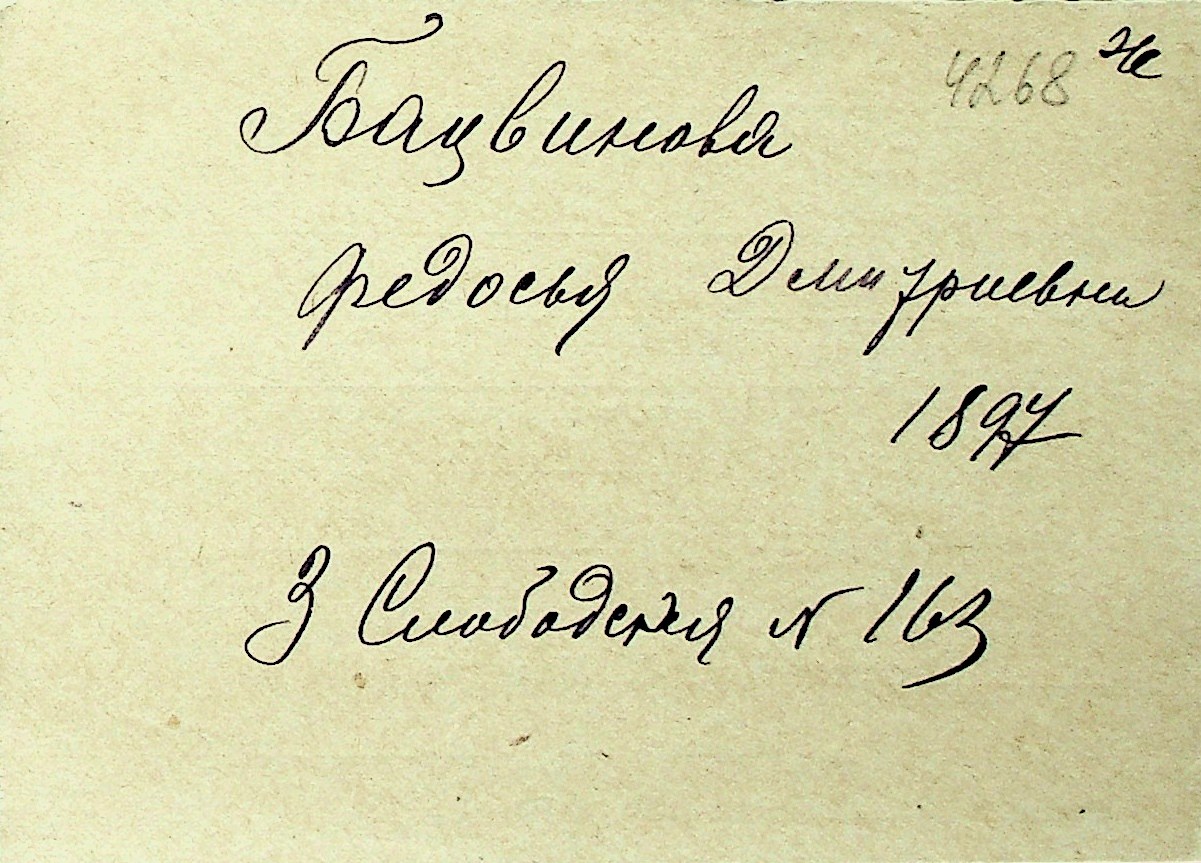 4268 ж
Бацвинова
Федосья Дмитриевна
1897
3 Слободская N 163